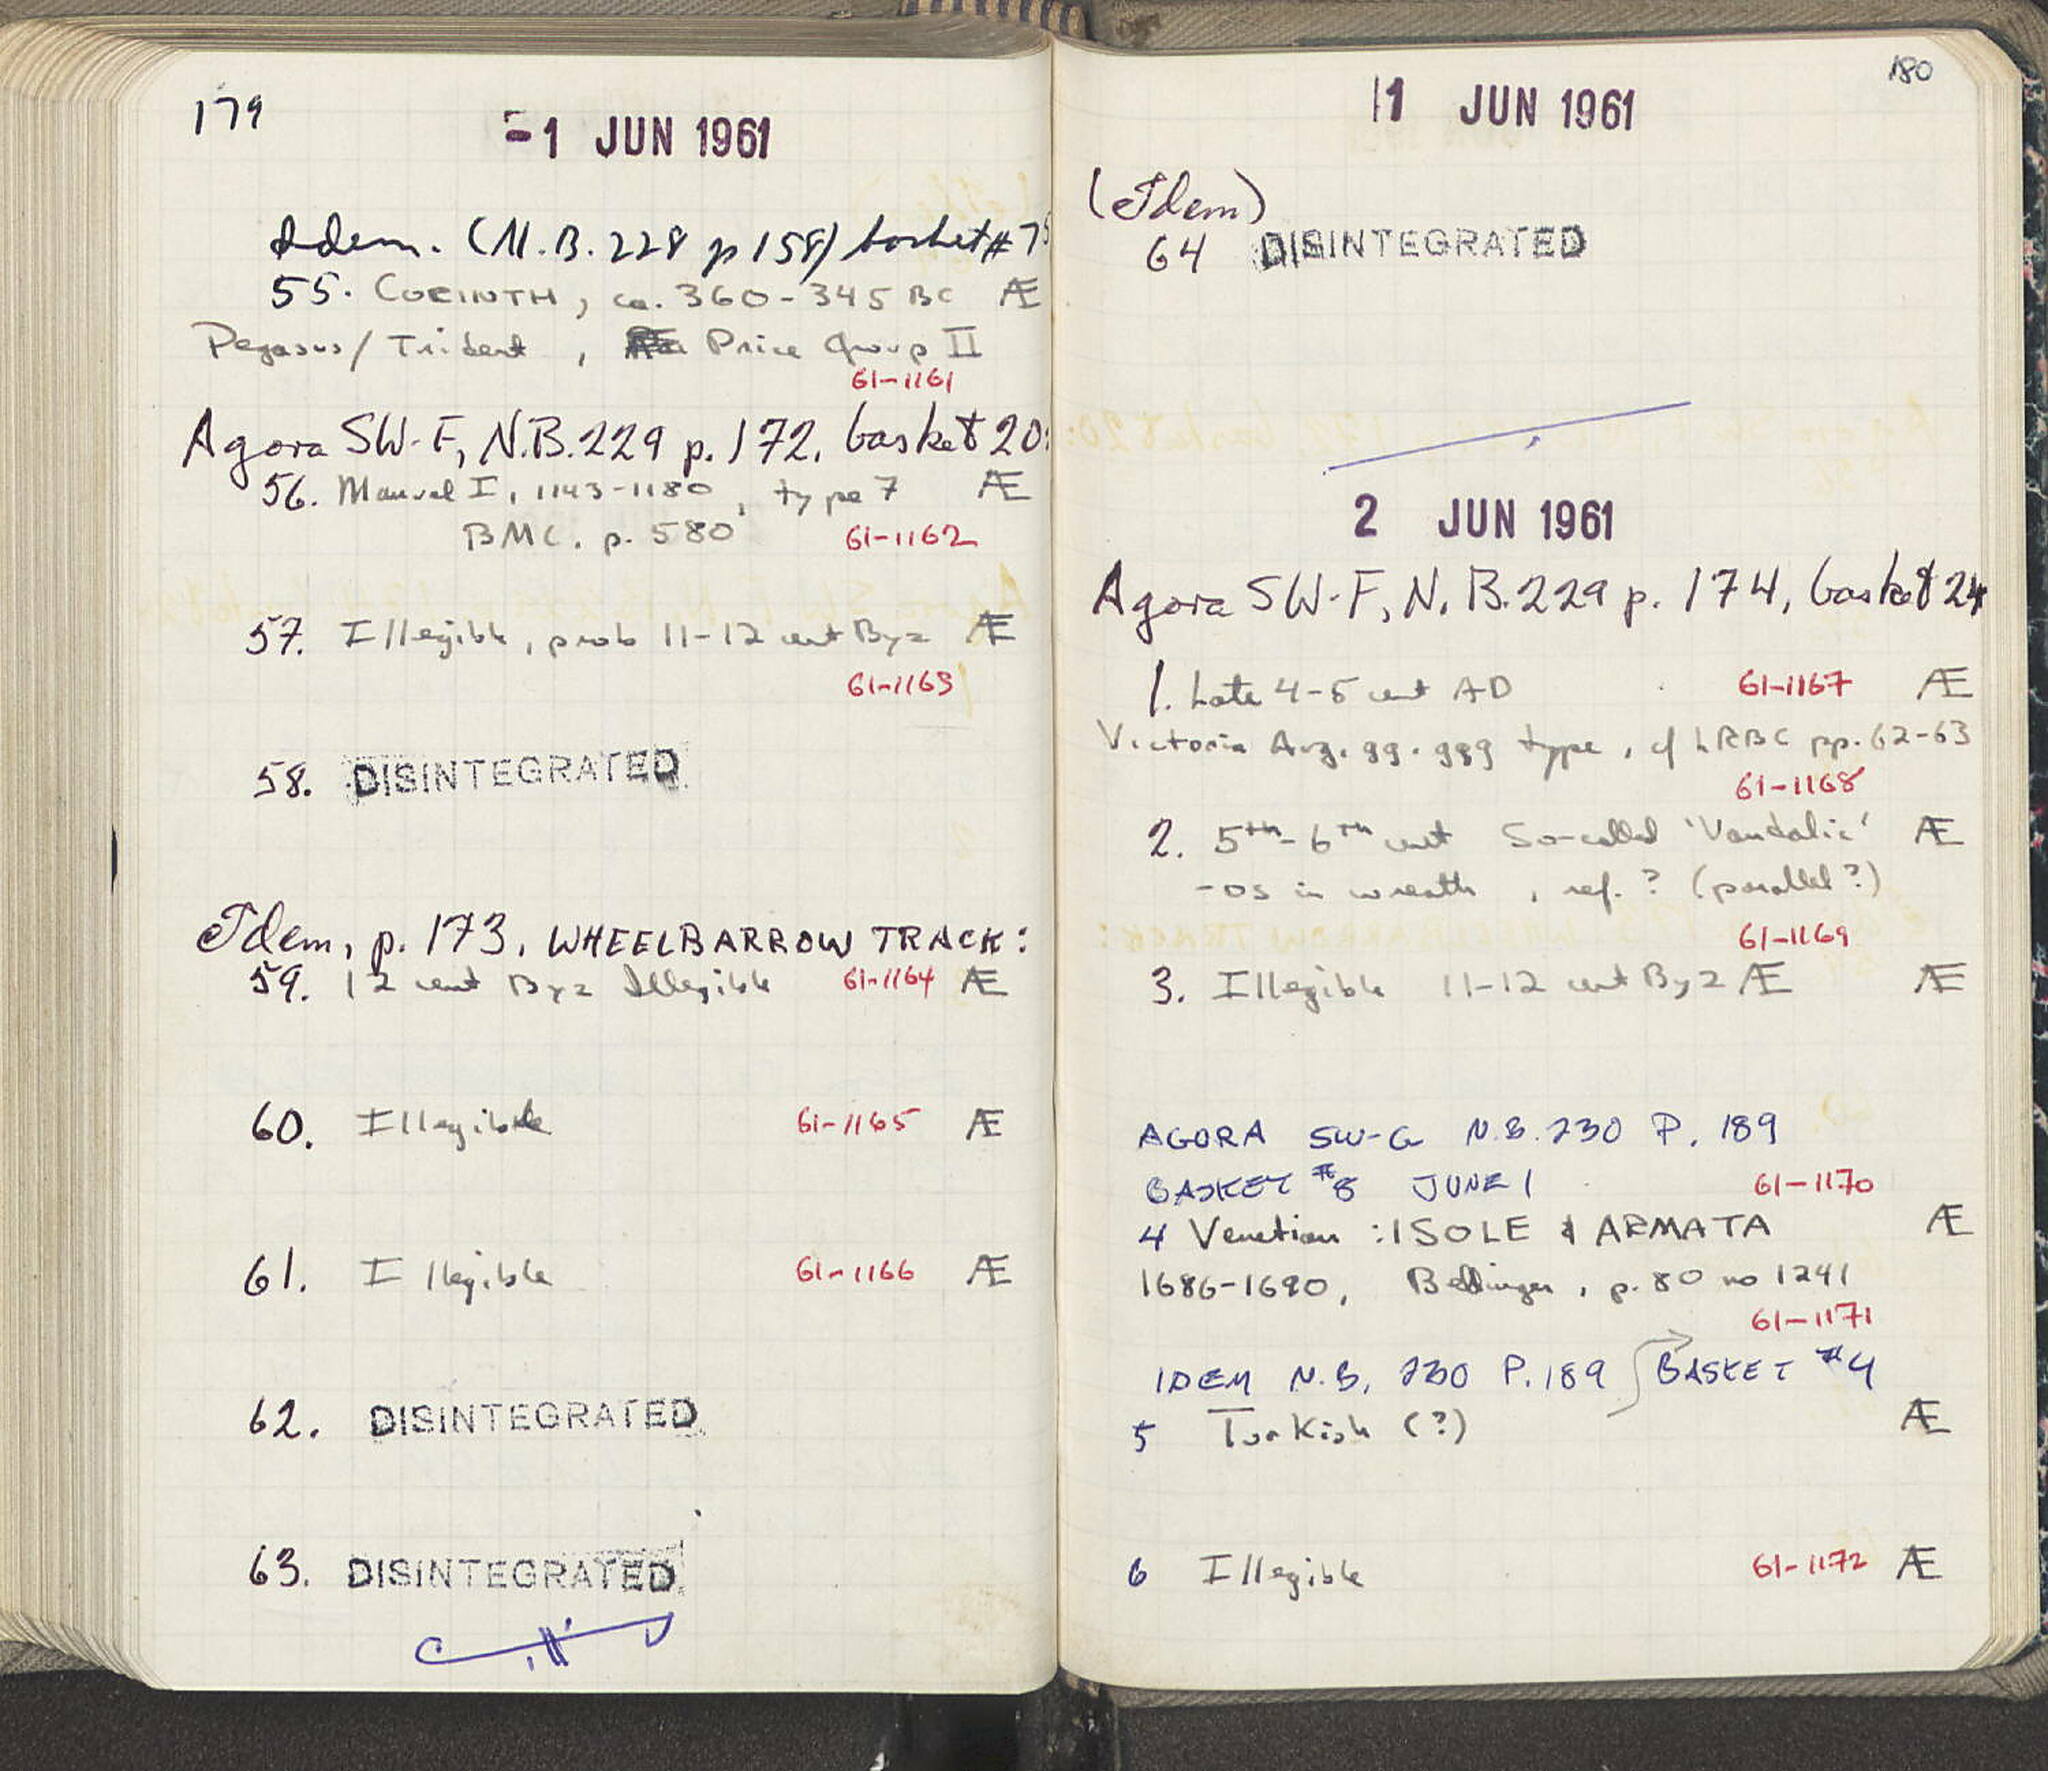 179
-1 JUN 1961
Idem. (N.B. 228 p 158) basket # 75
55. CORINTH, ca. 360-345 BC Æ
Pegasus/Trident, Price Group II
61-1161
Agora SW-F, N.B. 229 p. 172, basket 20:
56. Manuel I, 1143-1180, type 7 Æ
BMC. p. 580 61-1162
57. Illegible, prob 11-12 cent Byz Æ
61-1163
58. DISINTEGRATED
Idem, p. 173, WHEELBARROW TRACK:
59. 12 cent Byz Illegible 61-1164 Æ
60. Illegible 61-1165 Æ
61. Illegible 61-1166 Æ
62. DISINTEGRATED
63. DISINTEGRATED
180
1 JUN 1961
(Idem)
64 DISINTEGRATED
2 JUN 1961
Agora SW-F, N.B. 229 p. 174, basket 24
1. Late 4-5 cent AD 61-1167 Æ
Victoria Avg. gg. ggg type, cf LRBC pp. 62-63
61-1168
2. 5th-6th cent So-called 'Vandalic' Æ
-os in wreath, ref. ? (parallel?)
61-1169
3. Illegible 11-12 cent Byz Æ Æ
AGORA SW-G N.B. 230 P. 189
BASKET #8 JUNE 1 61-1170
4 Venetian : ISOLE & ARMATA Æ
1686-1690, Bellinger, p. 80 no 1241
61-1171
IDEM N.B. 230 P. 189 BASKET #4
5 Turkish (?) Æ
6 Illegible 61-1172 Æ